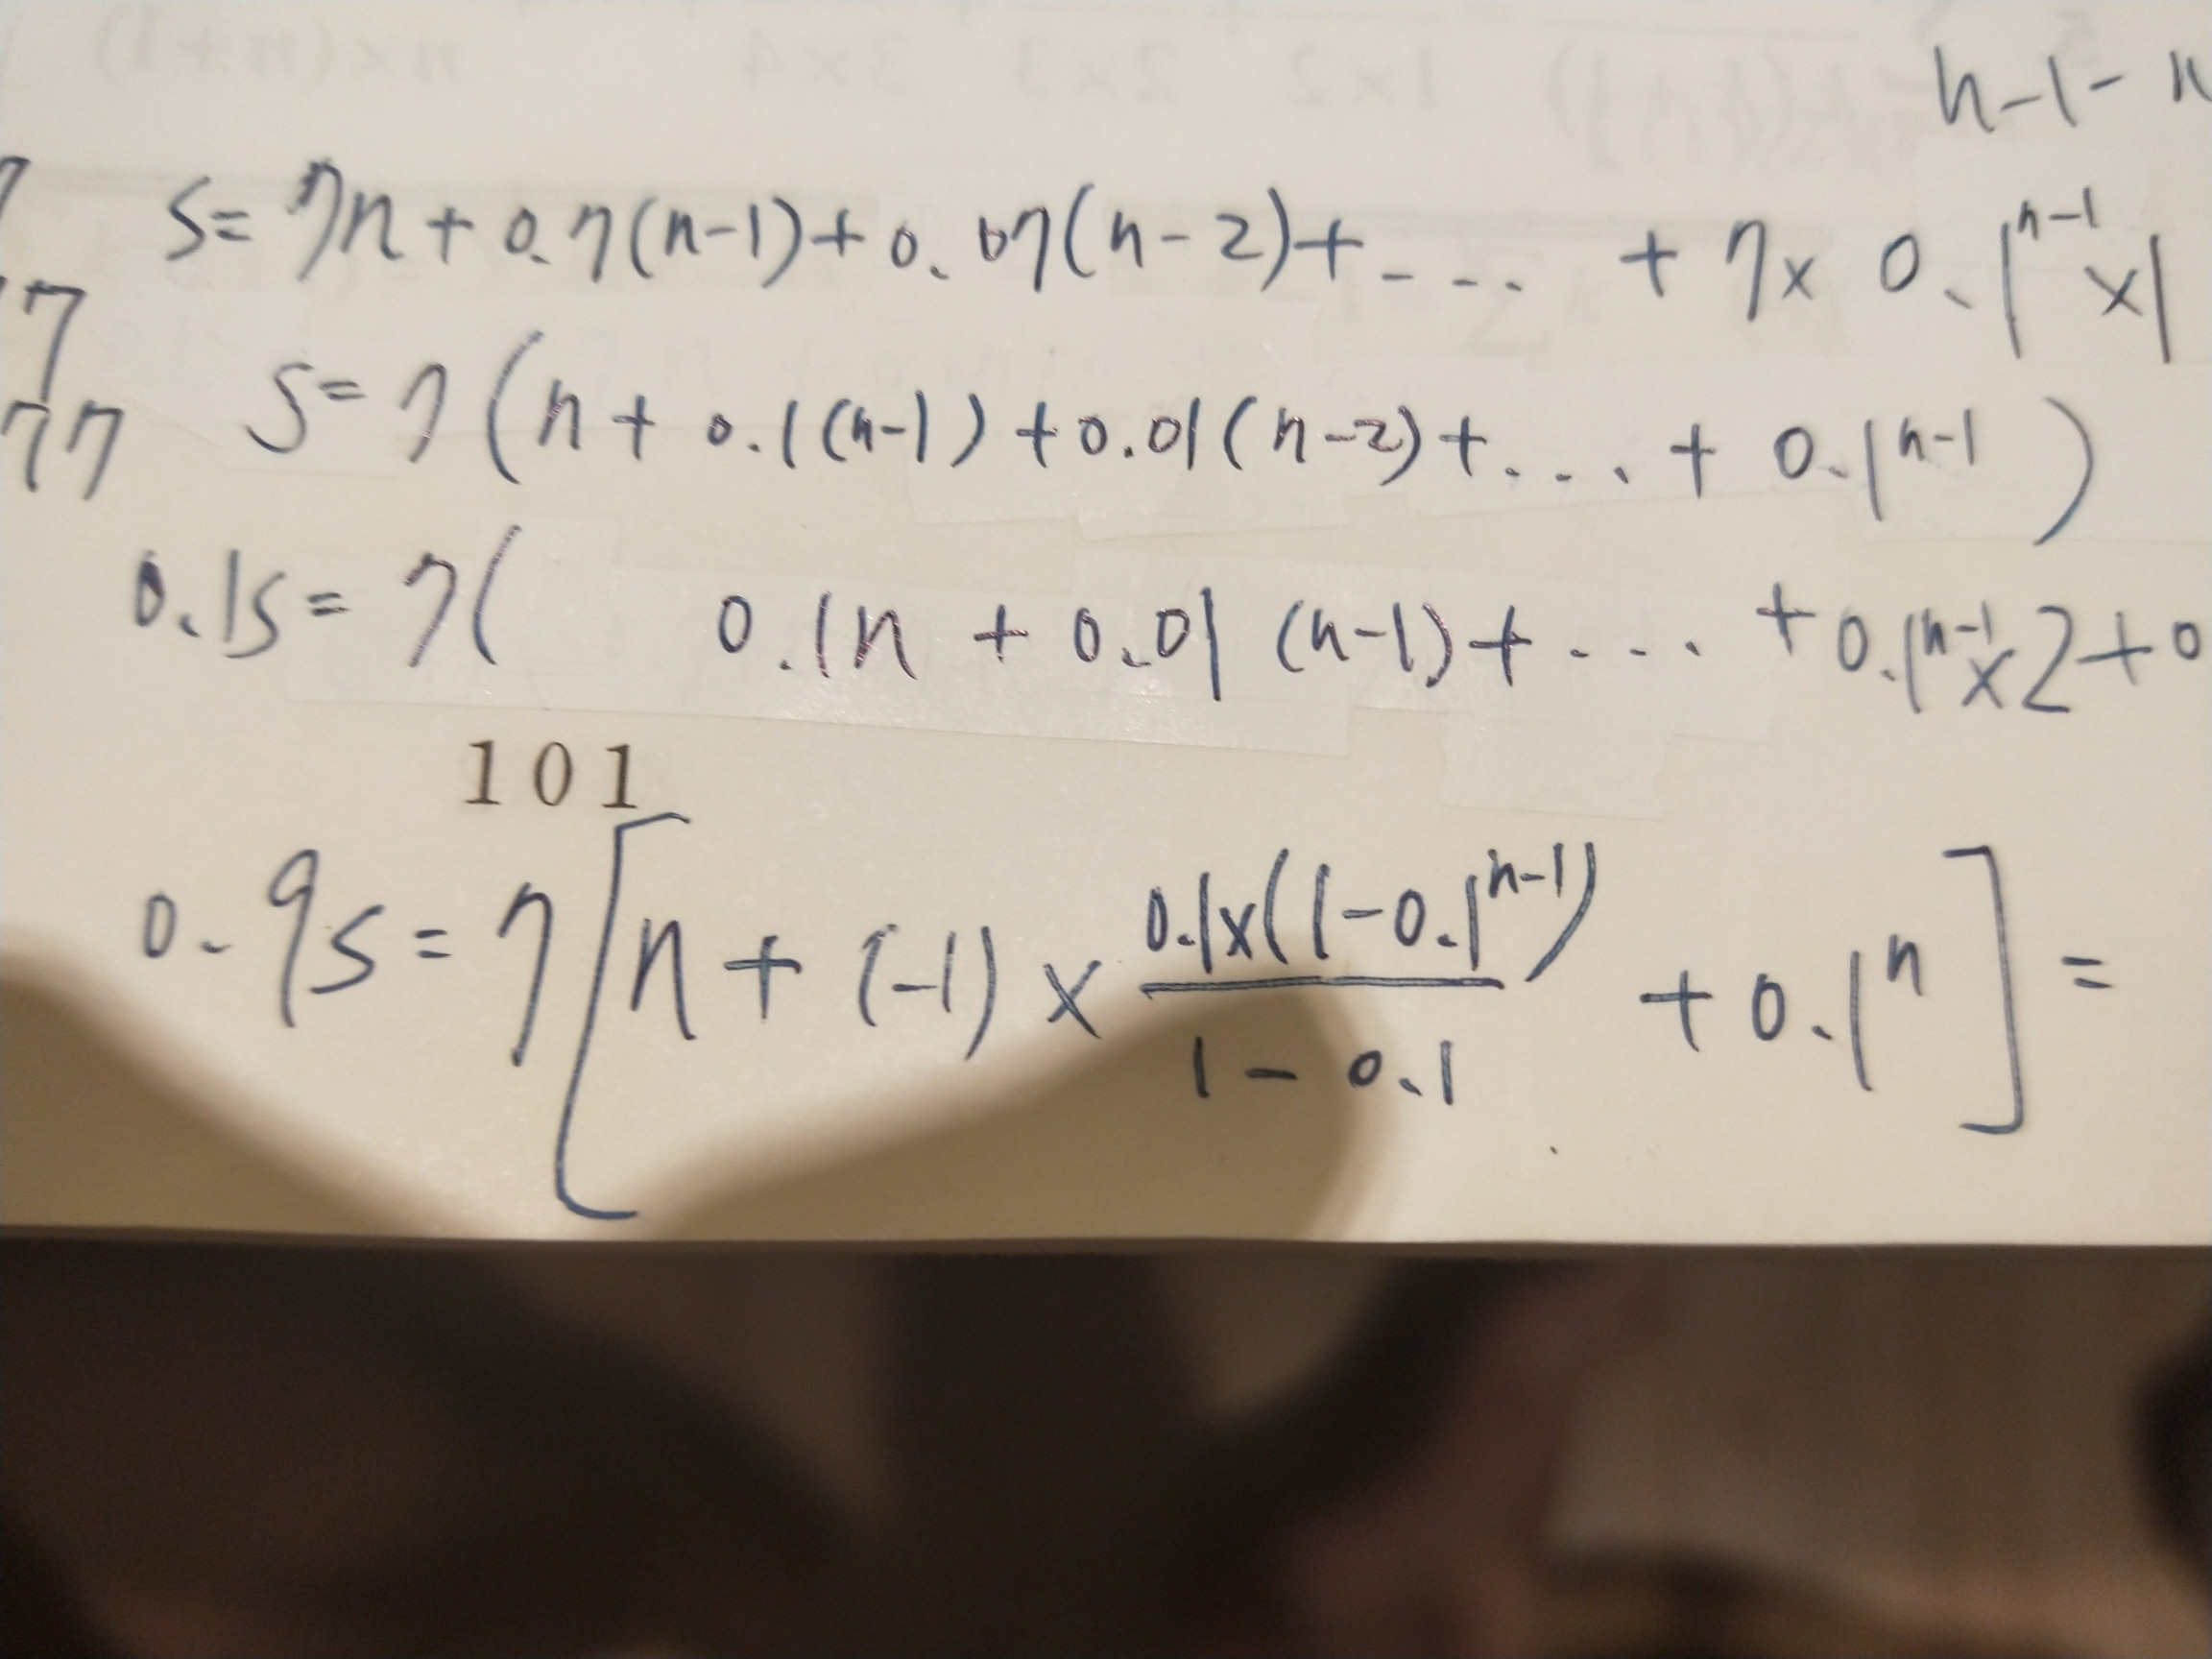 n-1-n
7 S= 7n + 0.7(n-1)+0.07(n-2)+---- + 7x 0.1^{n-1} x1
7
77 S= 7(n + 0.1(n-1)+0.01(n-2)+.... + 0.1^{n-1})
0.1S= 7( 0.1n + 0.01 (n-1)+ ---- +0.1^{n-1}x2+0
101
0.9S= 7[n+(-1)x \frac{0.1x(1-0.1^{n-1})}{1-0.1} +0.1^{n}]=